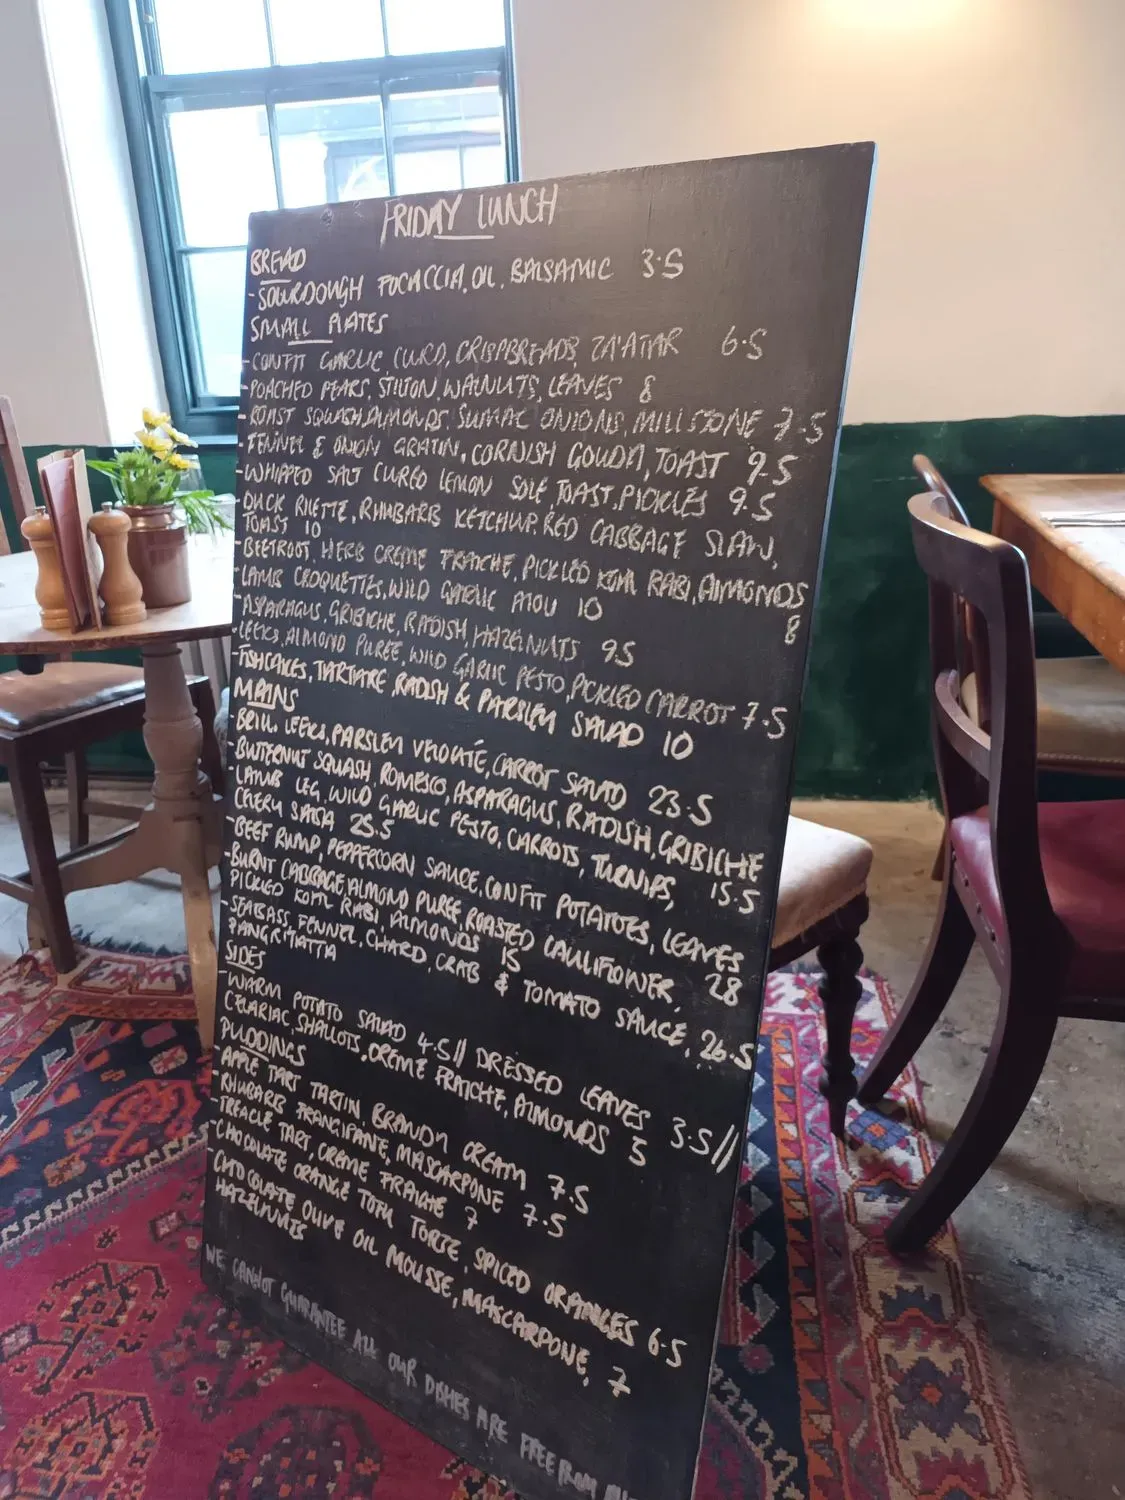 FRIDAY LUNCH
BREAD
-SOURDOUGH FOCACCIA, OIL, BALSAMIC 3.5
SMALL PLATES
-CONFIT GARLIC CURD, CRISPBREADS, ZA'ATAR 6.5
-POACHED PEARS, STILTON, WALNUTS, LEAVES 8
-ROAST SQUASH, ALMONDS, SUMAC ONIONS, MILLSTONE 7.5
-FENNEL & ONION GRATIN, CORNISH GOUDA, TOAST 9.5
-WHIPPED SALT CURED LEMON SOLE, TOAST, PICKLES 9.5
-DUCK RILETTE, RHUBARB KETCHUP, RED CABBAGE SLAW,
TOAST 10
-BEETROOT, HERB CREME FRAICHE, PICKLED KOHL RABI, ALMONDS
8
-LAMB CROQUETTES, WILD GARLIC AIOLI 10
-ASPARAGUS, GRIBICHE RADISH, HAZELNUTS 9.5
-LEEKS, ALMOND PUREE, WILD GARLIC PESTO, PICKLED CARROT 7.5
-FISHCAKES, TARTARE, RADISH & PARSLEY SALAD 10
MAINS
-BRILL, LEEKS, PARSLEY VELOUTÉ, CARROT SALAD 23.5
-BUTTERNUT SQUASH, ROMESCO, ASPARAGUS, RADISH, GRIBICHE
15.5
-LAMB LEG, WILD GARLIC PESTO, CARROTS, TURNIPS,
CELERY SALSA 25.5
-BEEF RUMP, PEPPERCORN SAUCE, CONFIT POTATOES, LEAVES
28
-BURNT CABBAGE, ALMOND PUREE, ROASTED CAULIFLOWER,
PICKLED KOHL RABI, ALMONDS 15
-SEABASS, FENNEL, CHARD, CRAB & TOMATO SAUCE, 26.5
PANGRITATTA
SIDES
-WARM POTATO SALAD 4.5// DRESSED LEAVES 3.5//
CELARIAC, SHALLOTS, CREME FRAICHE, ALMONDS 5
PUDDINGS
-APPLE TART TARTIN BRANDY CREAM 7.5
-RHUBARB FRANGIPANE, MASCARPONE 7.5
-TREACLE TART, CREME FRAICHE 7
-CHOCOLATE ORANGE TORTE, SPICED ORANGES 6.5
-CHOCOLATE OLIVE OIL MOUSSE, MASCARPONE, 7
HAZELNUTS
WE CANNOT GUARANTEE ALL OUR DISHES ARE FREE FROM